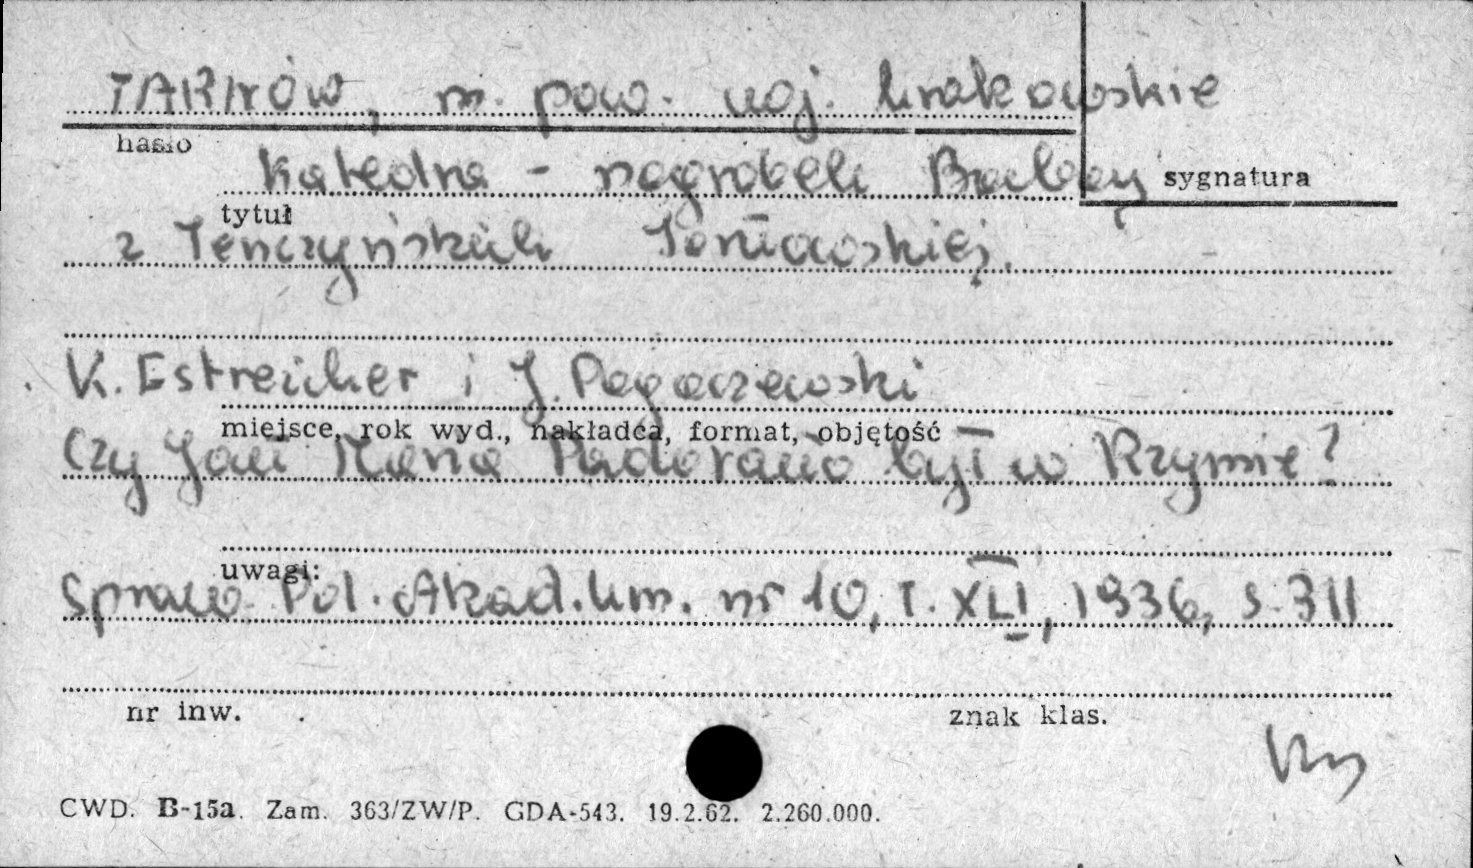 TARNÓW, m. pow. woj. krakowskie
hasło
Katedra - nagrobek Barbary
sygnatura
tytuł
z Tenczyńskich Tarnowskiej.
K. Estreicher i J. Pagaczewski
miejsce, rok wyd., nakładca, format, objętość
Czy Jan Maria Padovano był w Rzymie?
uwagi:
Spraw. Pol. Akad. Um. nr 10, T. XLI, 1936, s. 311
nr inw.
znak klas.
CWD. B-15a. Zam. 363/ZW/P. GDA-543. 19.2.62. 2.260.000.